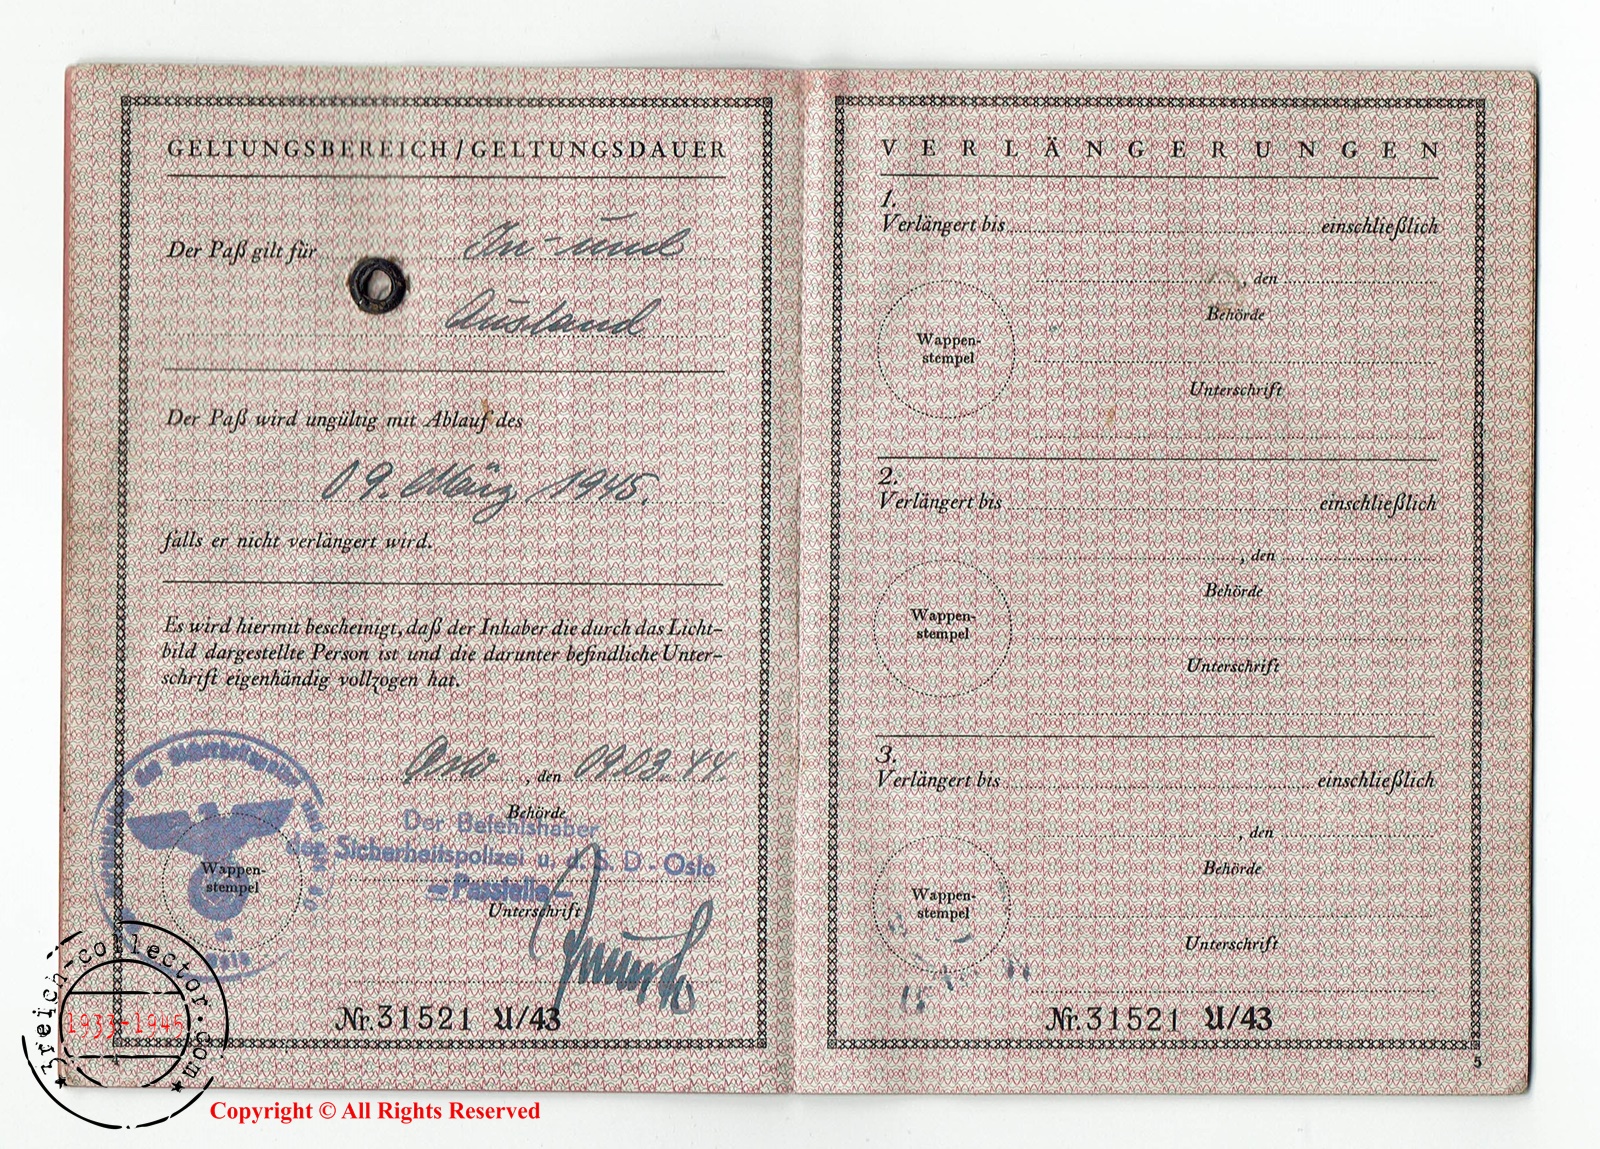 GELTUNGSBEREICH/GELTUNGSDAUER
Der Paß gilt für In- und
Ausland
Der Paß wird ungültig mit Ablauf des
09. März 1945.
falls er nicht verlängert wird.
Es wird hiermit bescheinigt, daß der Inhaber die durch das Licht-
bild dargestellte Person ist und die darunter befindliche Unter-
schrift eigenhändig vollzogen hat.
Oslo, den 09.03.44.
Behörde
Der Befehlshaber
der Sicherheitspolizei u. d. S. D - Oslo
- Passtelle -
Wappen-
stempel
Unterschrift
der Sicherheitspolizei und
Nr. 31521 U/43
VERLÄNGERUNGEN
1.
Verlängert bis einschließlich
, den
Behörde
Wappen-
stempel
Unterschrift
2.
Verlängert bis einschließlich
, den
Behörde
Wappen-
stempel
Unterschrift
3.
Verlängert bis einschließlich
, den
Behörde
Wappen-
stempel
Unterschrift
Nr. 31521 U/43
5
3reich-collector.com
1933-1945
Copyright © All Rights Reserved